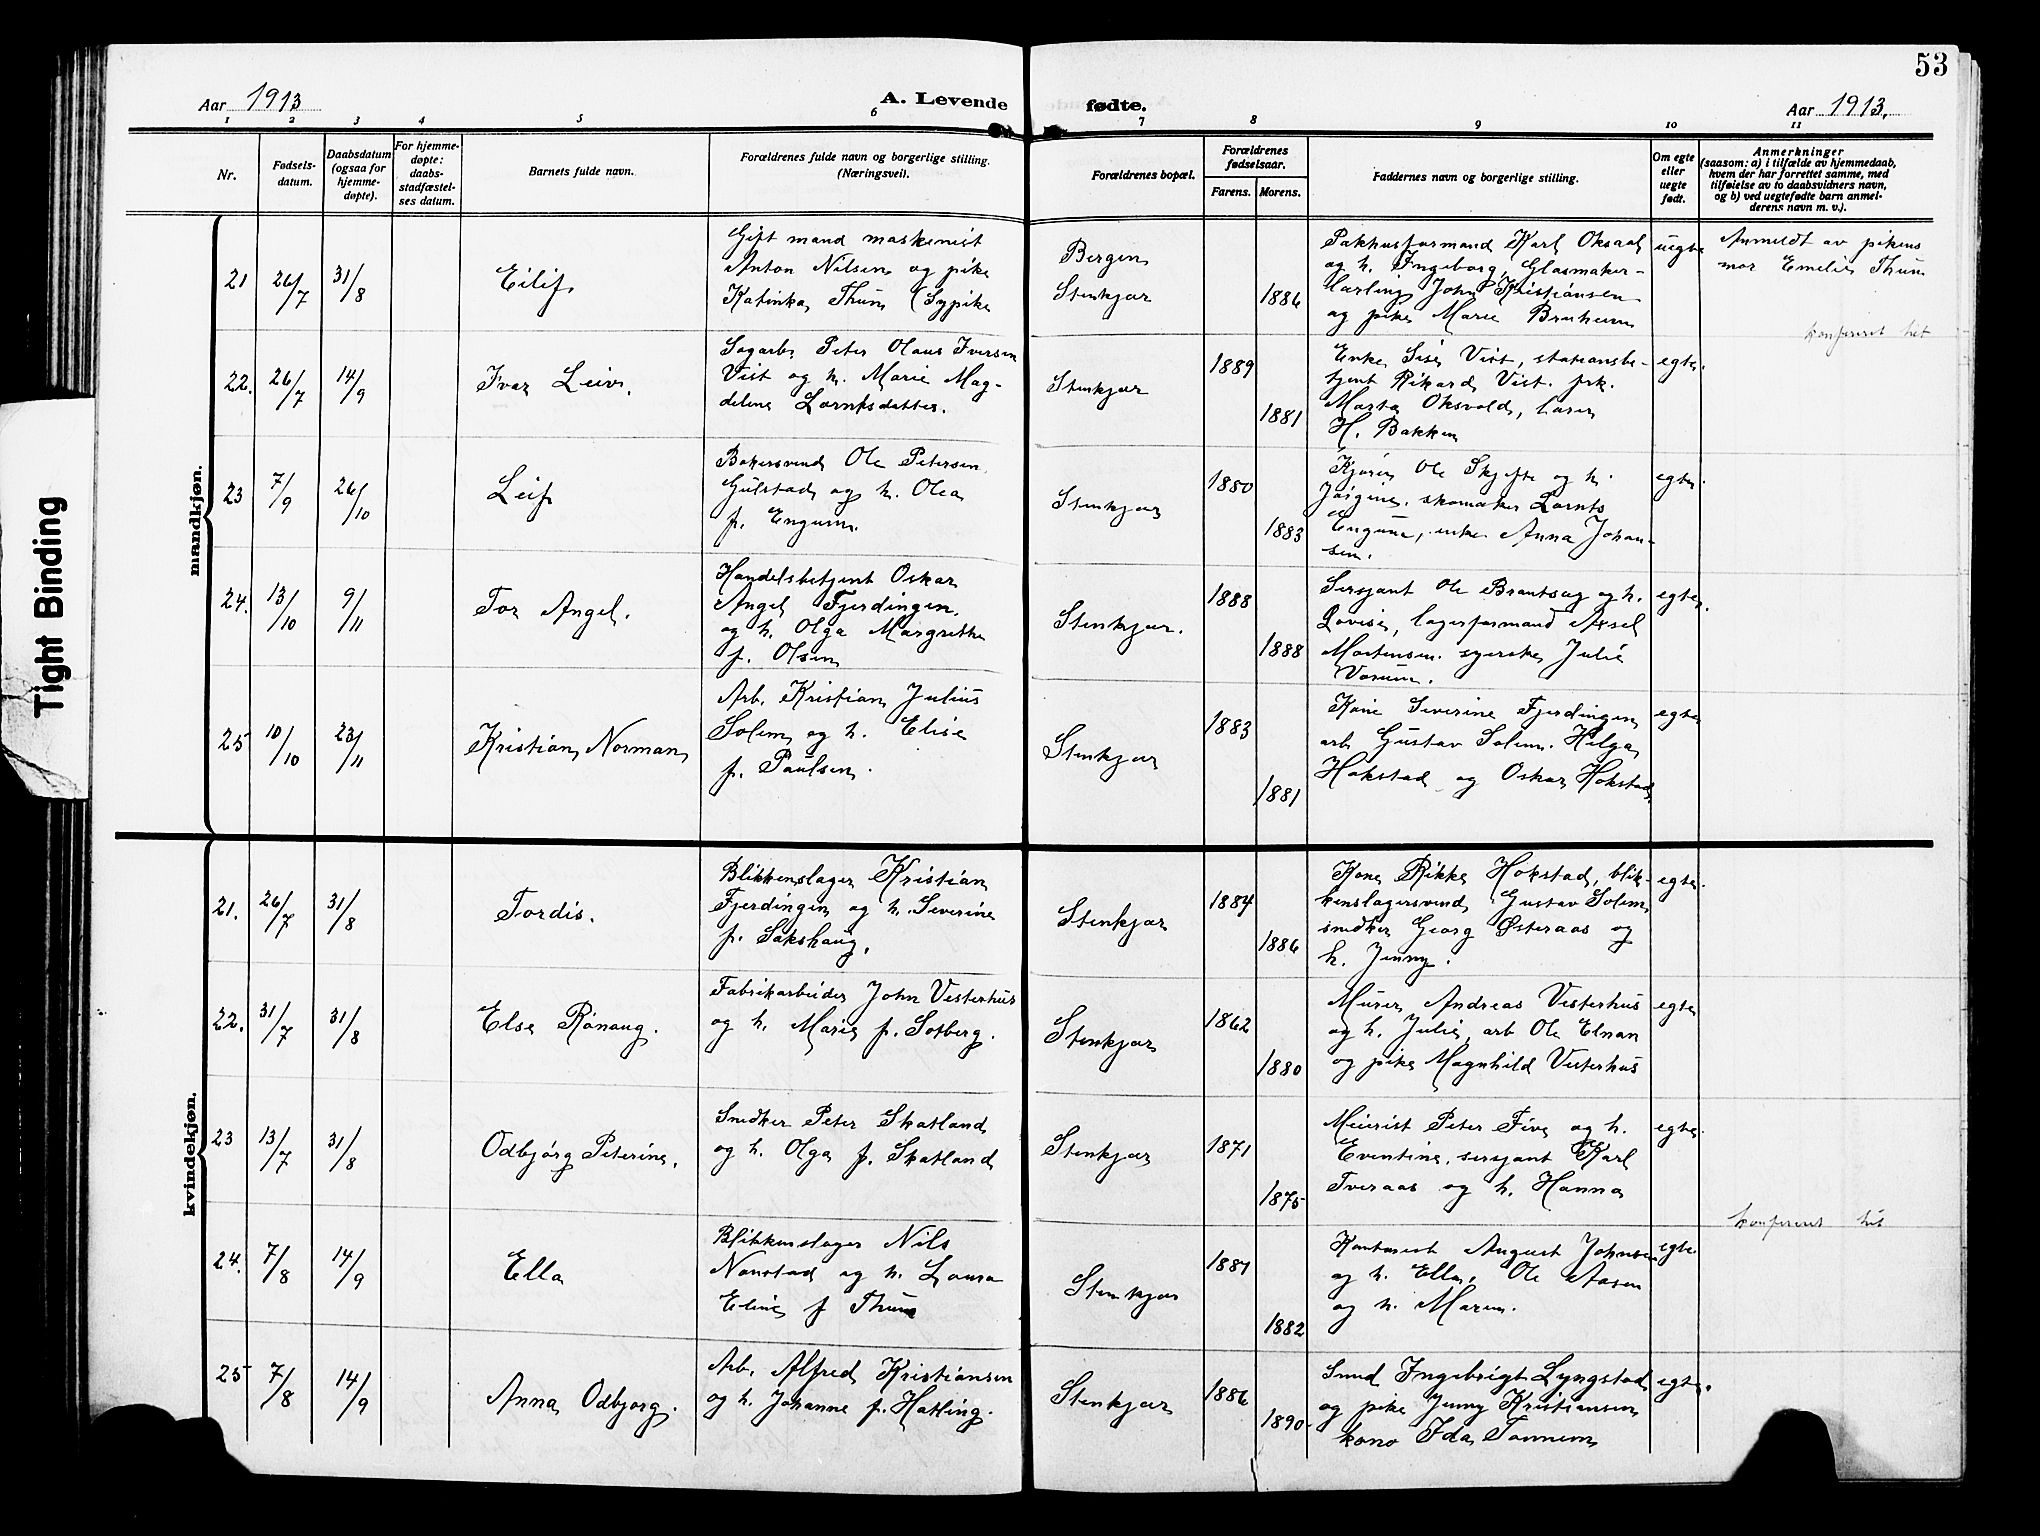 53
Aar 1913
A. Levende fødte.
Aar 1913.
1 2 3 4 5 6 7 8 9 10 11
Nr.
Fødsels-
datum.
Daabsdatum
(ogsaa for
hjemme-
døpte).
For hjemme-
døpte:
daabs-
stadfæstel-
ses datum.
Barnets fulde navn.
Forældrenes fulde navn og borgerlige stilling.
(Næringsvei).
Forældrenes bopæl.
Forældrenes
fødselsaar.
Farens. Morens.
Faddernes navn og borgerlige stilling.
Om egte
eller
uegte
født.
Anmerkninger
(saasom: a) i tilfælde av hjemmedaab,
hvem der har forrettet samme, med
tilføielse av to daabsvidners navn,
og b) ved uegtefødte barn anmel-
derens navn m. v.).
Tight Binding
mandkjøn.
21 26/7 31/8 Eilif
Gift mand maskinist
Anton Nilsen og pike
Katinka Thun (Sypike
Bergen
Stenkjær
1886
Pakhusformand Karl Oksaal
og h. Ingeborg, Glasmaker-
lærling John Kristiansen
og pike Marie Bruheim
uegte
Anmeldt av pikens
mor Emelie Thun
konferert hit
22. 26/7 14/9 Ivar Leiv.
Sagarb. Peter Olaus Iversen
Vist og h. Marie Mag-
delene Lorntsdatter.
Stenkjær
1889
1881
Enke Sise Vist, stationsbe-
tjent Rikard Vist. frk.
Marta Oksvold, lærer
H. Bakken
egte.
23 7/9 26/10 Leif
Bakersvend Ole Petersen
Gulstad og h. Olea
f. Engum.
Stenkjær
1880
1883
Kjører Ole Skjefte og h.
Jørgine. skomaker Lornts
Engum, enke Anna Johan-
sen.
egte.
24. 13/10 9/11 Tor Angel.
Handelsbetjent Oskar
Angel Fjerdingen.
og h. Olga Margrethe
f. Olsen
Stenkjær.
1888
1888
Sersjant Ole Brandtsæg og h.
Lovise, lagerformand Aksel
Mortensen. syerske Julie
Vorum.
egte.
25 10/10 23/11 Kristian Norman
Arb. Kristian Julius
Solem og h. Elise
f. Paulsen.
Stenkjær
1883
1881
Kone Severine Fjerdingen
arb Gustav Solem. Helga
Hokstad og Oskar Hokstad.
egte
kvindekjøn.
21. 26/7 31/8 Tordis.
Blikkenslager Kristian
Fjerdingen og h. Severine
f. Sakshaug.
Stenkjær
1884
1886
Kone Rikke Hokstad, blik-
kenslagersvend Gustav Solem,
snedker Georg Østeraas og
h. Jenny.
egte.
22. 31/7 31/8 Else Rønaug.
Fabrikarbeider John Vesterhus
og h. Marie f. Solberg.
Stenkjær
1862
1880
Murer Andreas Vesterhus
og h. Julie, arb Ole Elnan
og pike Magnhild Vesterhus
egte
23 13/7 31/8 Odbjørg Peterine.
Snedker Peter Skatland
og h. Olga f. Skatland
Stenkjær
1871
1875
Meierist Peter Five og h.
Eventine, sersjant Karl
Tveraas og h. Hanna
egte.
konferert hit
24. 7/8 14/9 Ella
Blikkenslager Nils
Naustad og h. Laura
Eline f Thun
Stenkjær
1881
1882
Kontorist August Johnsen
og h. Ella, Ole Aasen
og h. Maren.
egte
25 7/8 14/9 Anna Odbjørg.
Arb. Alfred Kristiansen
og h. Johanne f. Hatling.
Stenkjær
1886
1890
Smed Ingebrigt Lyngstad
og pike Jenny Kristiansen
kone Ida Tannem
egte.